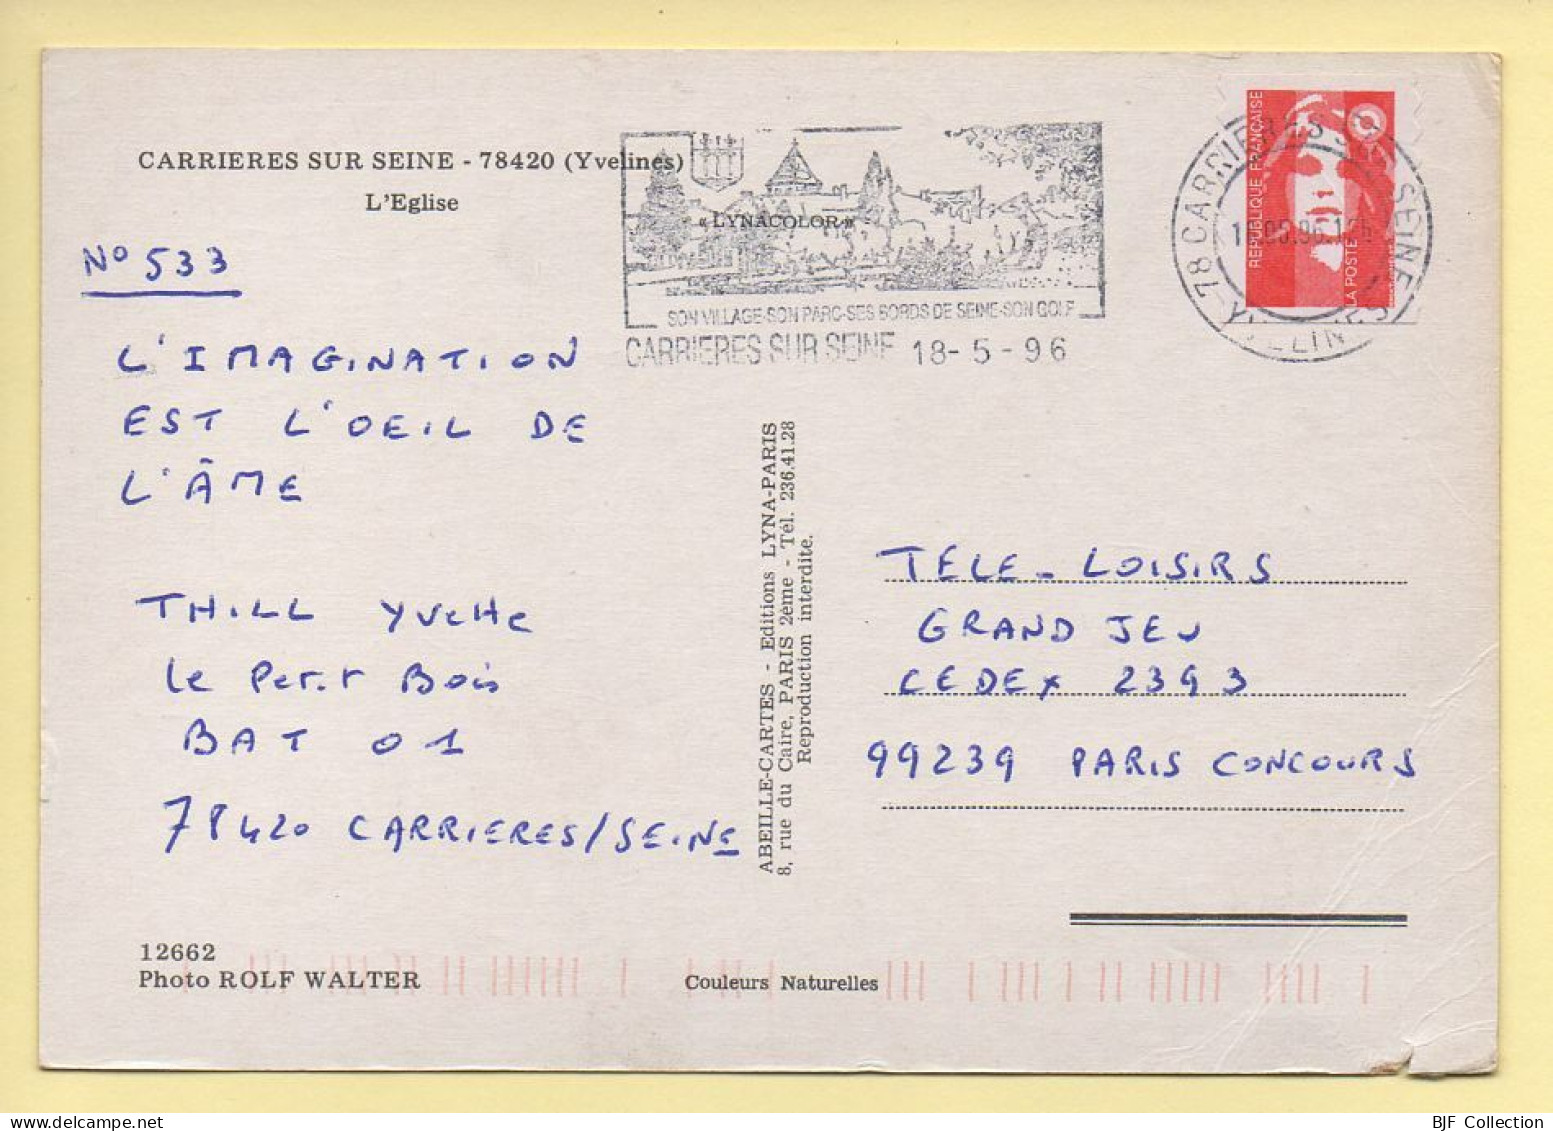 CARRIERES SUR SEINE - 78420 (Yvelines)
L'Eglise
« LYNACOLOR »
N° 533
L'IMAGINATION
EST L'OEIL DE
L'ÂME
THILL Yvette
Le Petit Bois
BAT 01
78420 CARRIERES/SEINE
12662
Photo ROLF WALTER
SON VILLAGE-SON PARC-SES BORDS DE SEINE-SON GOLF
CARRIERES SUR SEINE 18-5-96
ABEILLE-CARTES - Editions LYNA-PARIS
8, rue du Caire, PARIS 2ème - Tél. 236.41.28
Reproduction interdite.
Couleurs Naturelles
REPUBLIQUE FRANÇAISE
LA POSTE
78 CARRIERES SEINE
YVELINES
TELE-LOISIRS
GRAND JEU
CEDEX 2393
99239 PARIS CONCOURS
BJF Collection